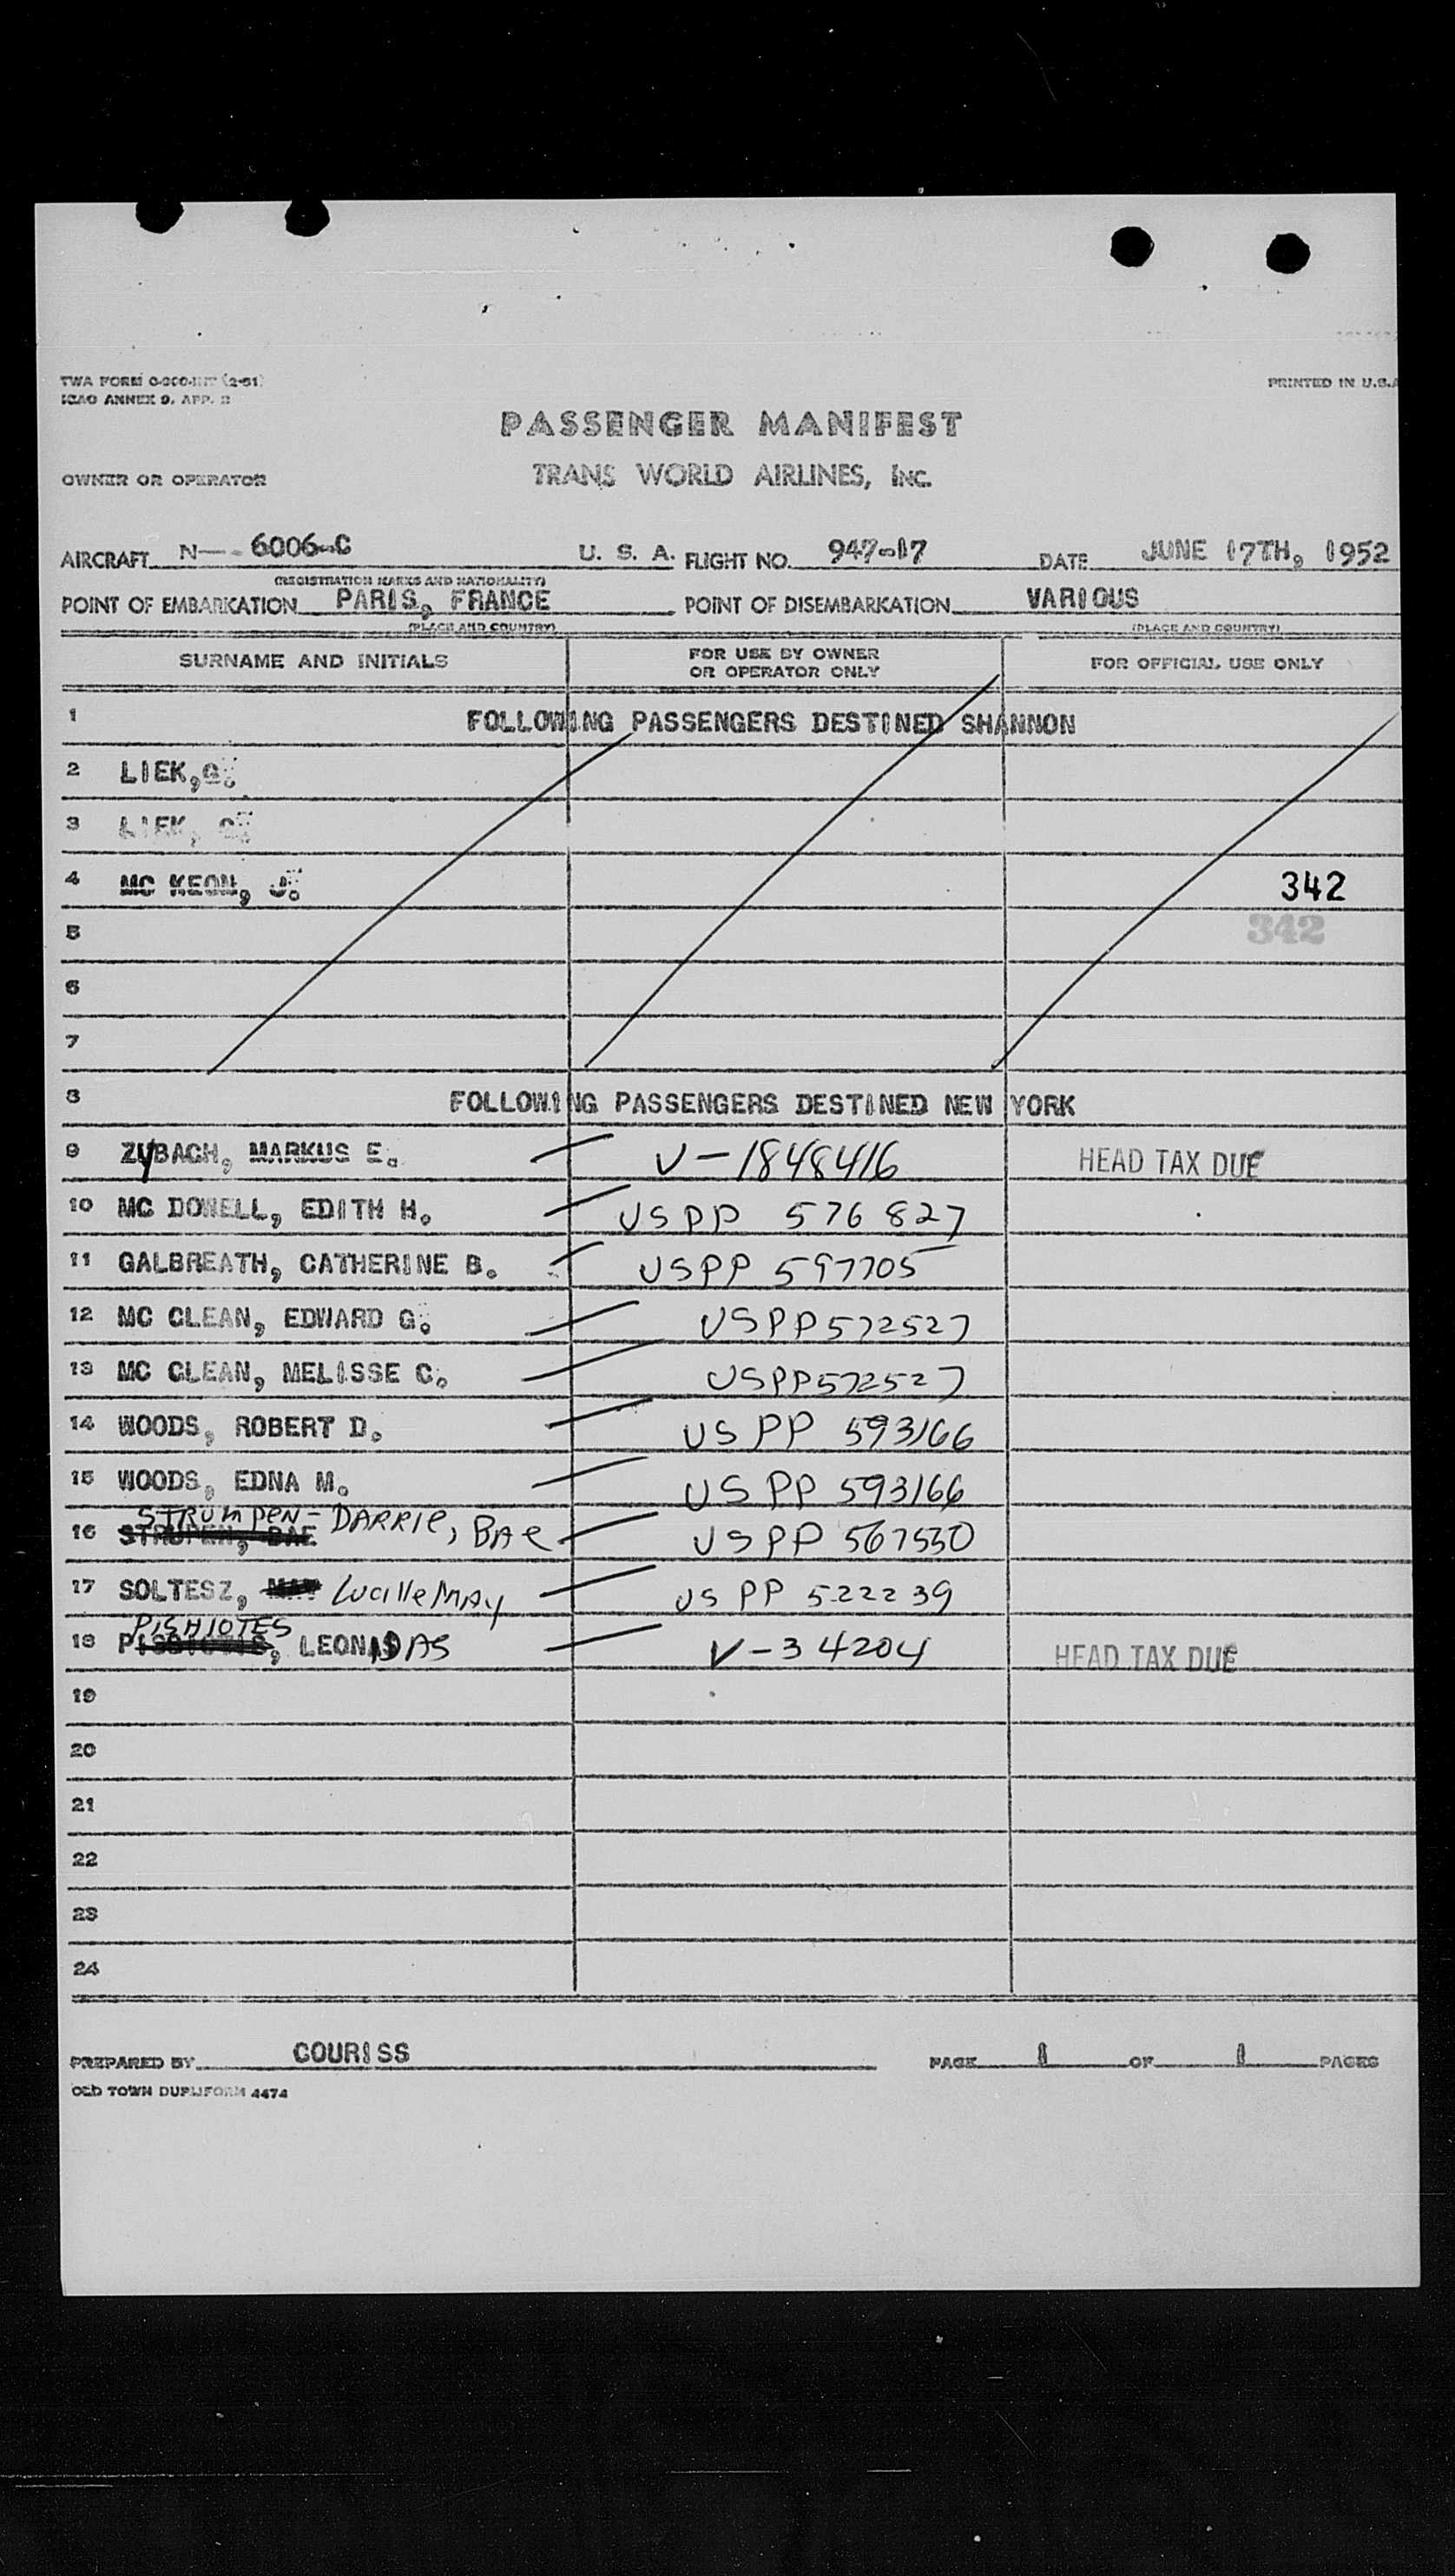 TWA FORM
ICAO ANNEX 9, APP. 2
PRINTED IN U.S.A
PASSENGER MANIFEST
OWNER OR OPERATOR TRANS WORLD AIRLINES, INC.
AIRCRAFT N- 6006-C U. S. A. FLIGHT NO. 947-17 DATE JUNE 17TH, 1952
(REGISTRATION MARKS AND NATIONALITY)
POINT OF EMBARKATION PARIS, FRANCE POINT OF DISEMBARKATION VARIOUS
(PLACE AND COUNTRY) (PLACE AND COUNTRY)
SURNAME AND INITIALS FOR USE BY OWNER OR OPERATOR ONLY FOR OFFICIAL USE ONLY
1 FOLLOWING PASSENGERS DESTINED SHANNON
2 LIEK, G.
3 LIEK,
4 MC KEON, J. 342
5 342
6
7
8 FOLLOWING PASSENGERS DESTINED NEW YORK
9 ZYBACH, MARKUS E. V-1848416 HEAD TAX DUE
10 MC DOWELL, EDITH H. USPP 576827
11 GALBREATH, CATHERINE B. USPP 597705
12 MC CLEAN, EDWARD G. USPP572527
13 MC CLEAN, MELISSE C. USPP572527
14 WOODS, ROBERT D. US PP 593166
15 WOODS, EDNA M. US PP 593166
STRUMPEN-DARRIE, BAE
16 STRUPEN, BAE USPP 567530
17 SOLTESZ, MAY Lucille MAY US PP 522239
PISHIOTES
18 LEONIDAS V-34204 HEAD TAX DUE
19
20
21
22
23
24
PREPARED BY COURISS PAGE 1 OF 1 PAGES
OLD TOWN DUPLIFORM 4474